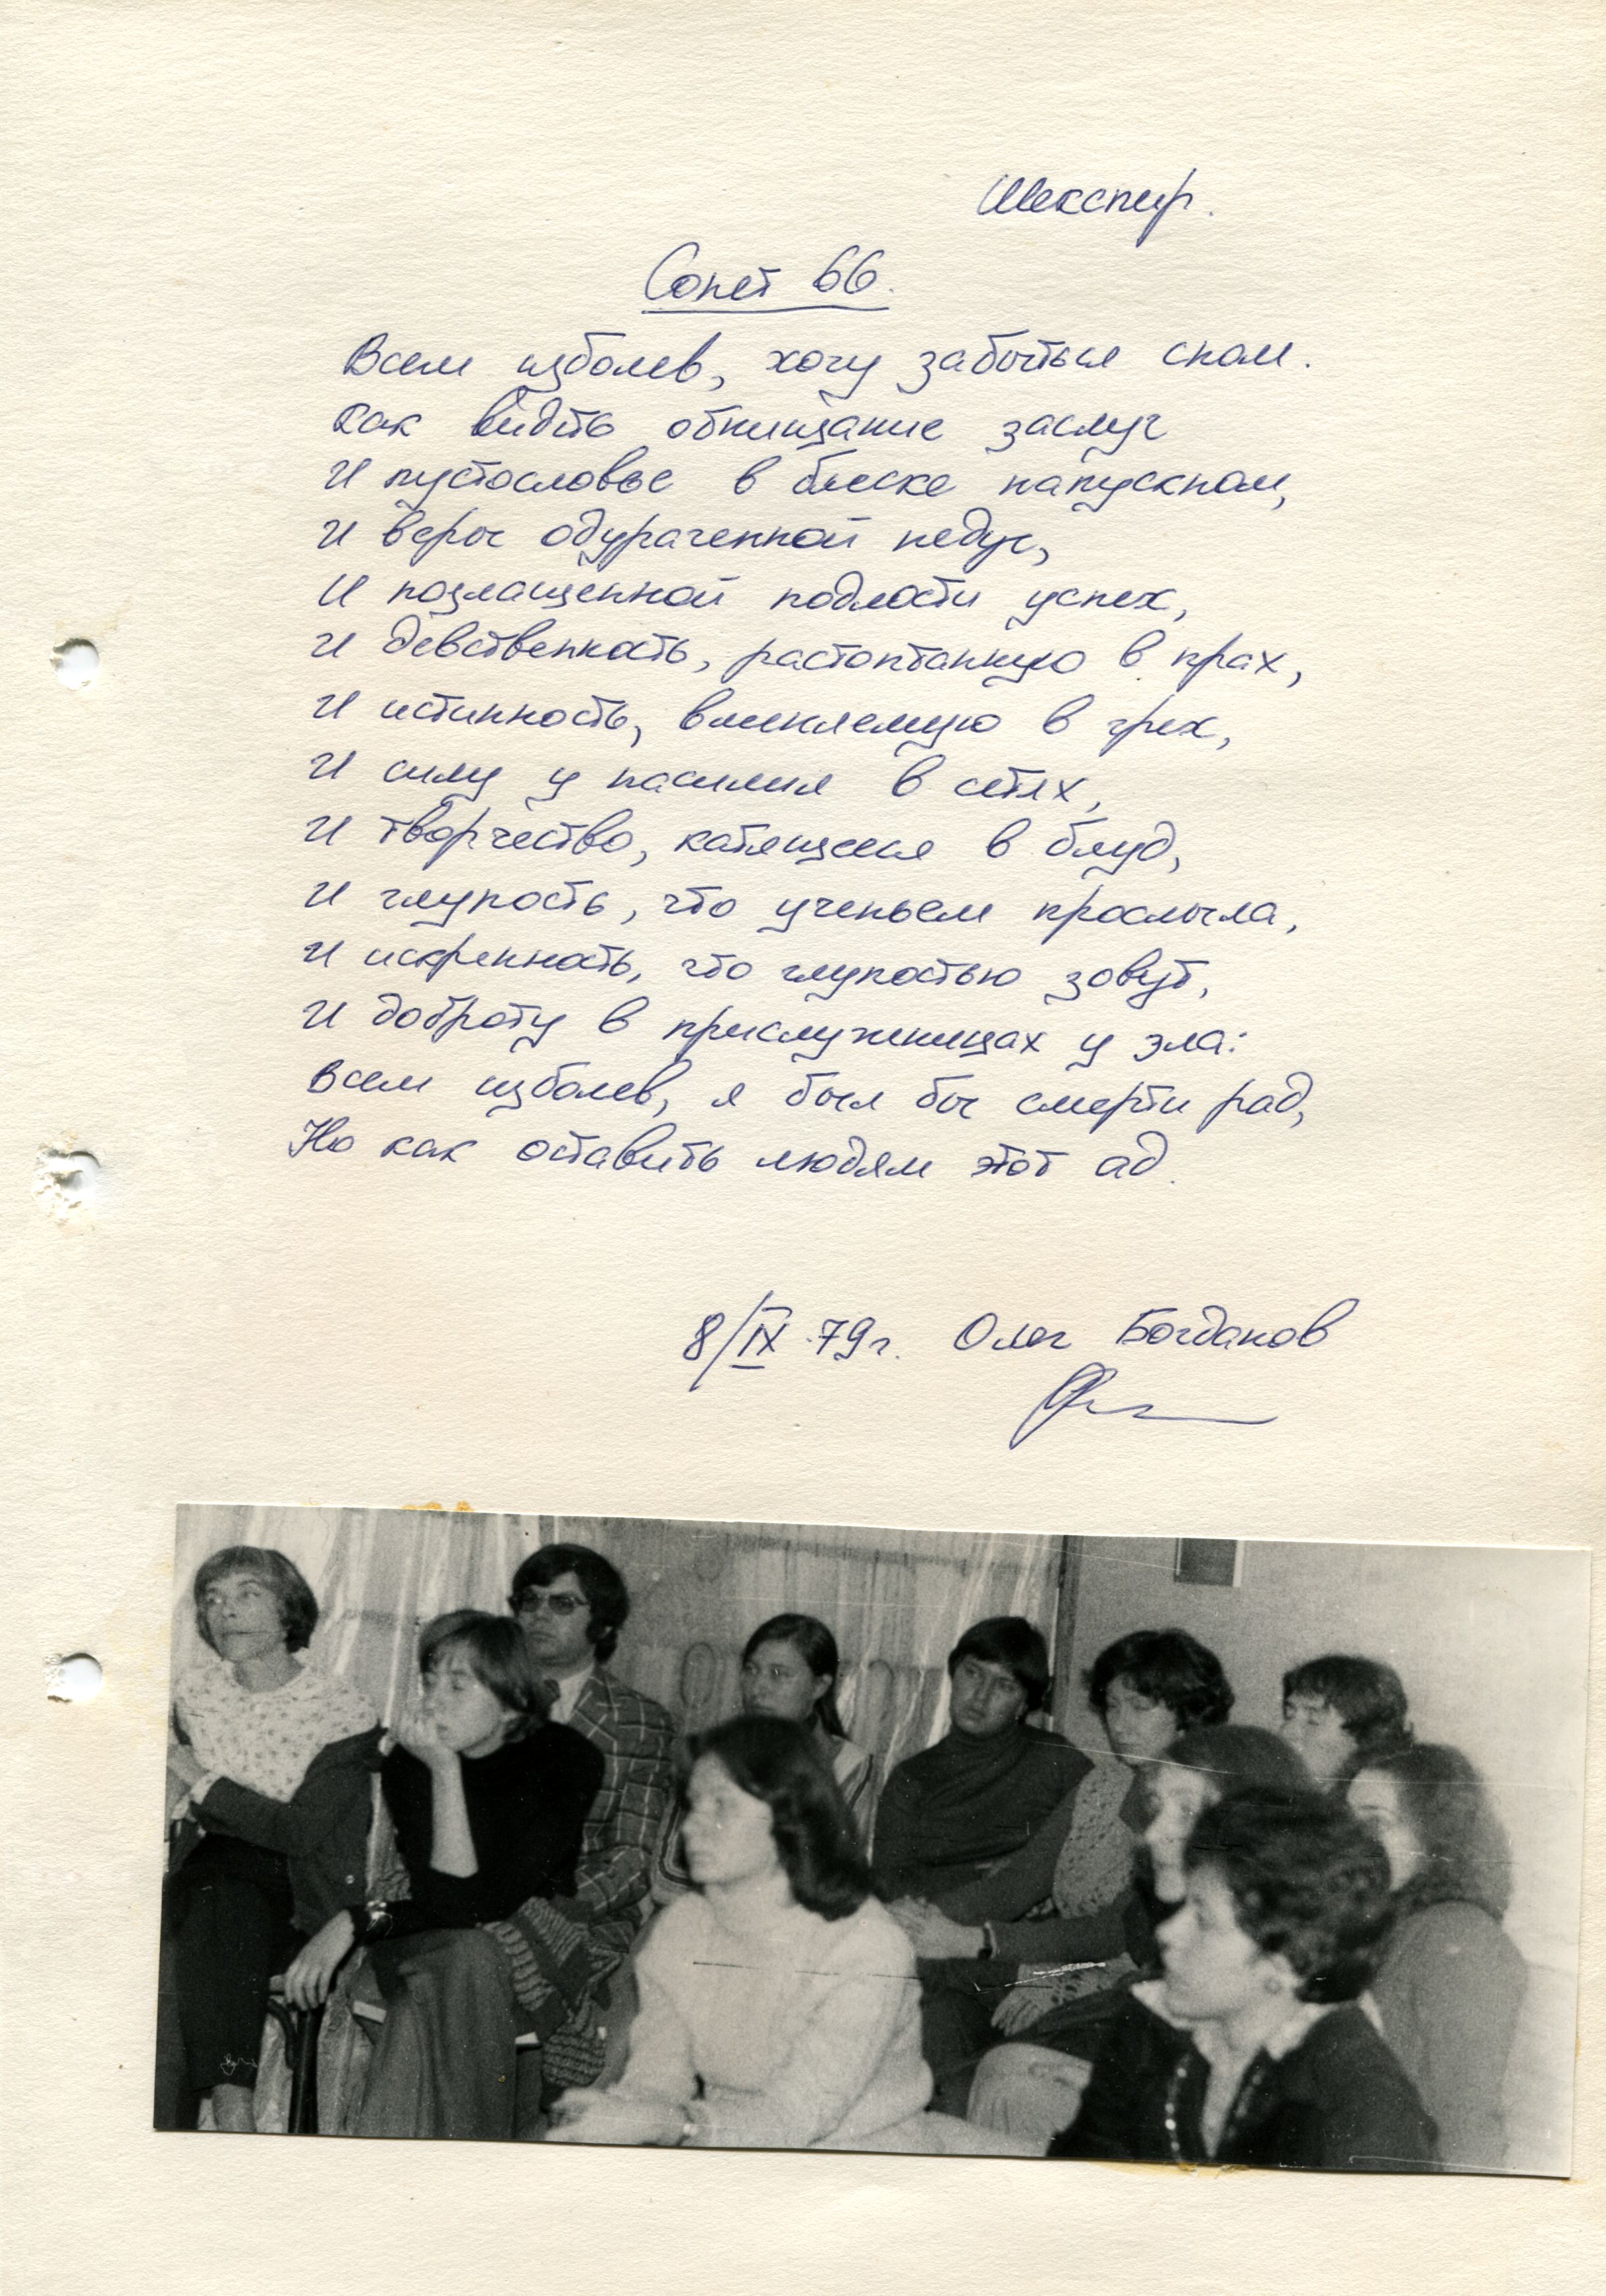 Шекспир.
Сонет 66.
Всем изболев, хочу забыться сном.
Как видеть обнищание заслуг
И пустословье в блеске напускном,
И веры одураченной недуг,
И позлащенной подлости успех,
И девственность, растоптанную в прах,
И истинность, вменяемую в грех,
И силу у насилия в сетях,
И творчество, катящееся в блуд,
И глупость, что ученьем прослыла,
И искренность, что глупостью зовут,
И доброту в прислужницах у зла:
Всем изболев, я был бы смерти рад,
Но как оставить людям этот ад.
8/IX 79г. Олег Богданов